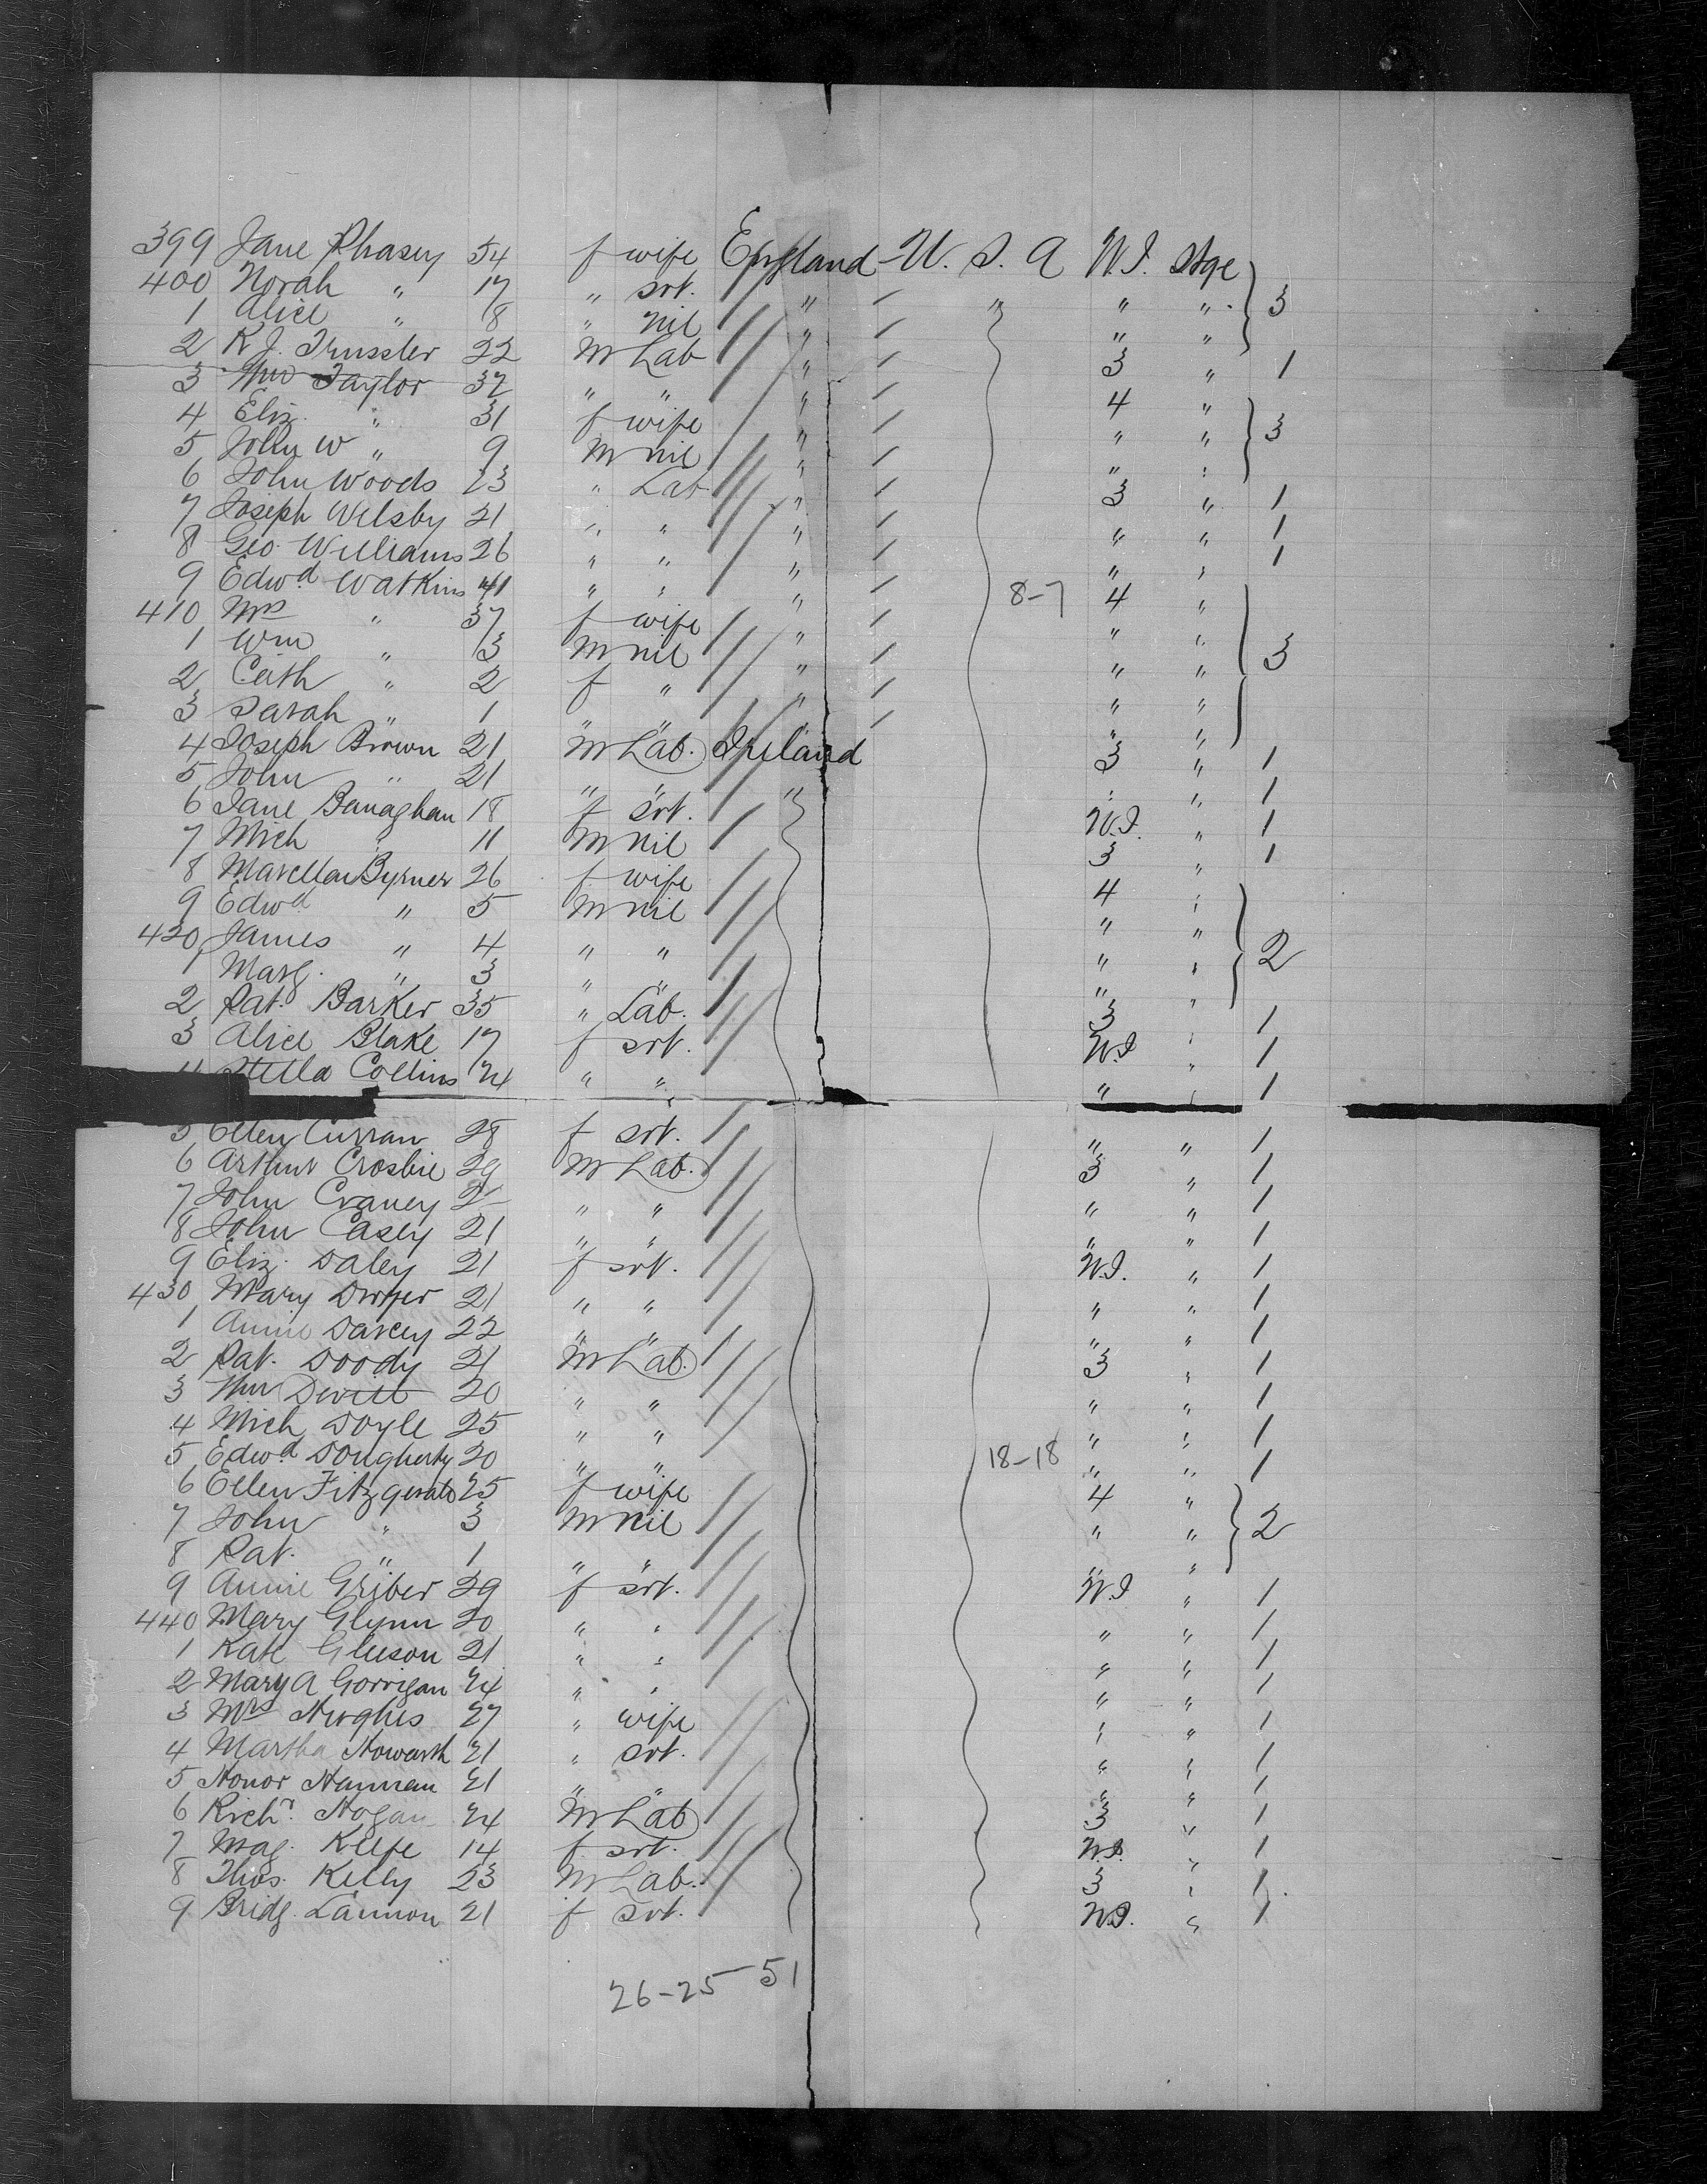 399 Jane Phasey 54 f wife England U. S. A W.I. Stge
400 Norah " 17 " srt. " " " " 3
1 Alice " 8 " nil " " "
2 R J. Trussler 22 M Lab " 3 " 1
3 Wm Taylor 37 " " " 4 "
4 Eliz. " 31 f wife " " " 3
5 John W " 9 M nil " " "
6 John Woods 23 " Lab " 3 " 1
7 Joseph Welsby 21 " " " " " 1
8 Geo. Williams 26 " " " " " 1
9 Edwd Watkins 41 " " " 8-7 4 "
410 Mrs " 37 f wife " " "
1 Wm " 3 M nil " " " 3
2 Cath " 2 f " " " "
3 Sarah " 1 " " " "
4 Joseph Brown 21 M Lab. Ireland 3 " 1
5 John " 21 " " " " " 1
6 Jane Banaghan 18 f srt. W.I. " 1
7 Mich " 11 M nil 3 " 1
8 Marcella Byrnes 26 f wife 4 "
9 Edwd " 5 M nil " "
420 James " 4 " " " " 2
1 Marg. " 3 " " " "
2 Pat. Barker 35 " Lab. 3 " 1
3 Alice Blake 17 f srt. W.I " 1
4 Stella Collins 24 " " " " 1
5 Ellen Curran 28 f srt. " " 1
6 Arthur Crosbie 29 M Lab. 3 " 1
7 John Craney " " " " 1
8 John Casey 21 " " " " 1
9 Eliz. Daley 21 f srt. W.I. " 1
430 Mary Dwyer 21 " " " " 1
1 Annie Darcey 22 " " " " 1
2 Pat. Doody 21 M Lab. 3 " 1
3 Wm Devitt 20 " " " " 1
4 Mich Doyle 25 " " " " 1
5 Edwd Dougherty 20 " " 18-18 " " 1
6 Ellen Fitzgerald 25 f wife 4 "
7 John " 3 M nil " " 2
8 Pat. " 1 " " " "
9 Annie Griber 29 f srt. W.I " 1
440 Mary Glynn 20 " " " " 1
1 Kate Gleeson 21 " " " " 1
2 Mary A Gorrigan 24 " " " " 1
3 Mrs Hughes 27 " wife " " 1
4 Martha Howarth 21 " srt. " " 1
5 Honor Hannan 21 " " " " 1
6 Richd. Hogan 24 M Lab 3 " 1
7 Mag. Keefe 14 f srt. W.I. " 1
8 Thos. Kelly 23 M Lab. 3 " 1
9 Bridg. Lannon 21 f srt. W.I. " 1
26-25 51